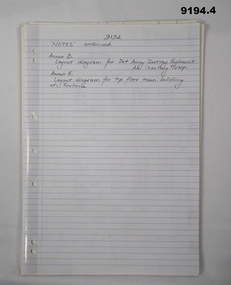 9194.4
9194
'NOTES' continued
Annex D.
Layout diagram for 2nd Army Survey Regiment
Annex E.
Layout diagram for top floor main building
at